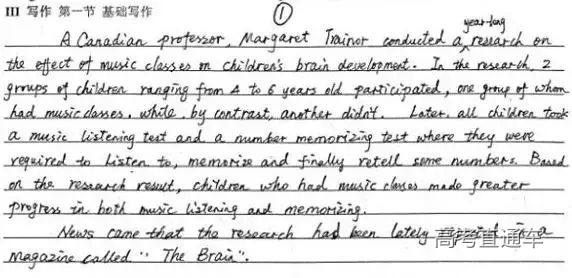 III 写作 第一节 基础写作
①
year-long
A Canadian professor, Margaret Trainor conducted a research on
the effect of music classes on children's brain development. In the research, 2
groups of children ranging from 4 to 6 years old participated, one group of whom
had music classes, while, by contrast, another didn't. Later, all children took
a music listening test and a number memorizing test where they were
required to listen to, memorize and finally retell some numbers. Based
on the research result, children who had music classes made greater
progress in both music listening and memorizing.
News came that the research had been lately in a
magazine called "The Brain".
高考直通车